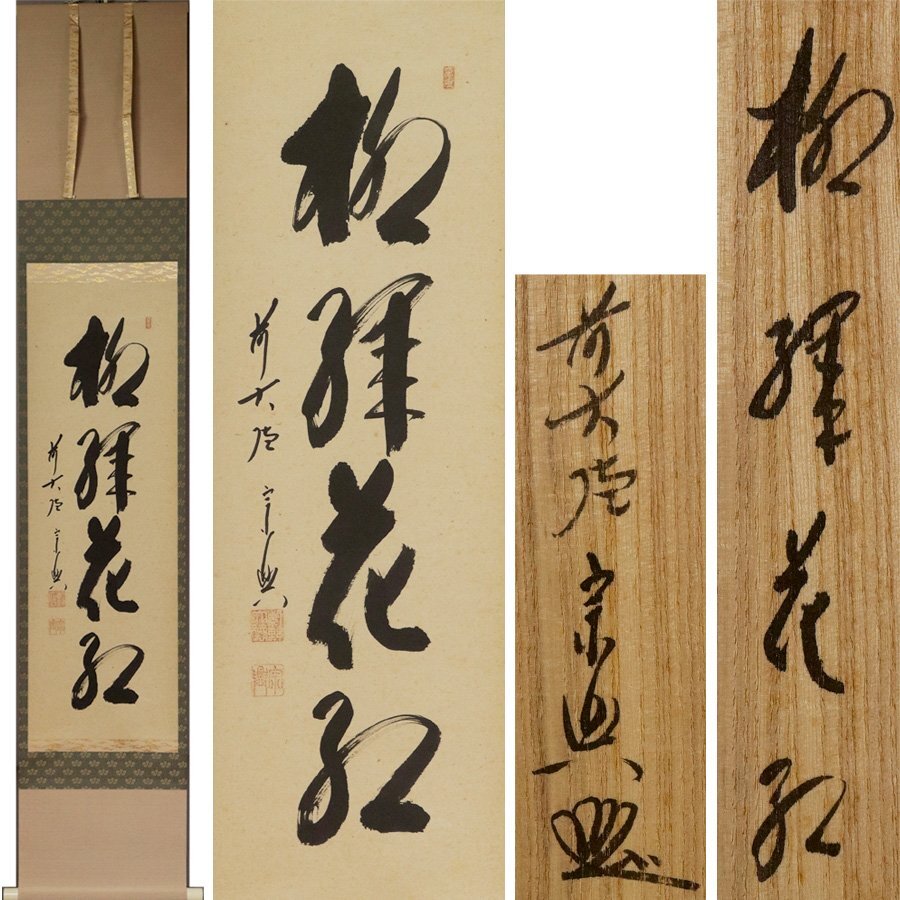 柳緑花紅
前大徳 宗興
柳緑花紅
前大徳 宗興
前大徳 宗興
柳緑花紅